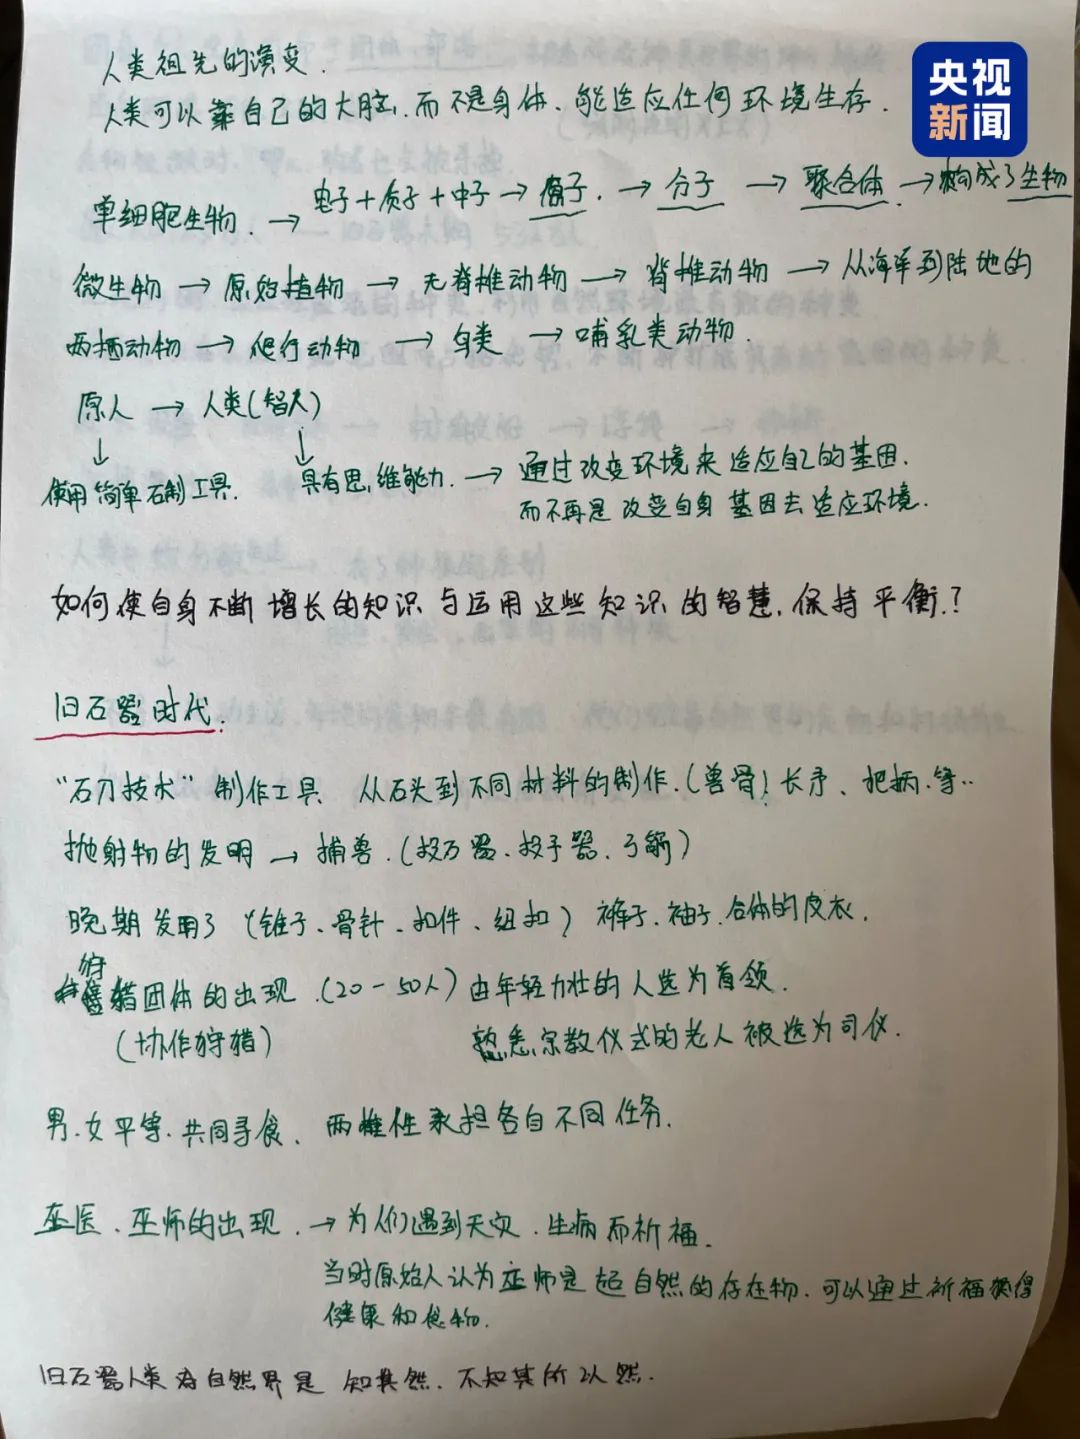 央视
新闻
人类祖先的演变.
人类可以靠自己的大脑,而不是身体、能适应任何环境生存.
单细胞生物. → 电子+质子+中子→ 原子. → 分子 → 聚合体 →构成了生物
微生物 → 原始植物 → 无脊椎动物 → 脊椎动物 → 从海洋到陆地的
两栖动物 → 爬行动物 → 鸟类 → 哺乳类动物.
原人 → 人类(智人)
↓ ↓
使用简单石制工具. 具有思维能力. → 通过改变环境来适应自己的基因.
而不再是改变自身基因去适应环境.
如何使自身不断增长的知识与运用这些知识的智慧,保持平衡.?
旧石器时代.
“石刀技术” 制作工具 从石头到不同材料的制作.(兽骨)长矛、把柄.等..
抛射物的发明 → 捕兽.(投石器、投矛器、弓箭)
晚期发明了(锥子、骨针、扣件、纽扣) 裤子、袖子.合体的皮衣.
狩猎团体的出现.(20-50人)由年轻力壮的人选为首领.
(协作狩猎) 熟悉宗教仪式的老人被选为司仪.
男.女平等.共同寻食、两性承担各自不同任务.
巫医、巫师的出现.→为人们遇到天灾.生病而祈福.
当时原始人认为巫师是超自然的存在物.可以通过祈福获得
健康和食物.
旧石器人类对自然界是 知其然.不知其所以然.